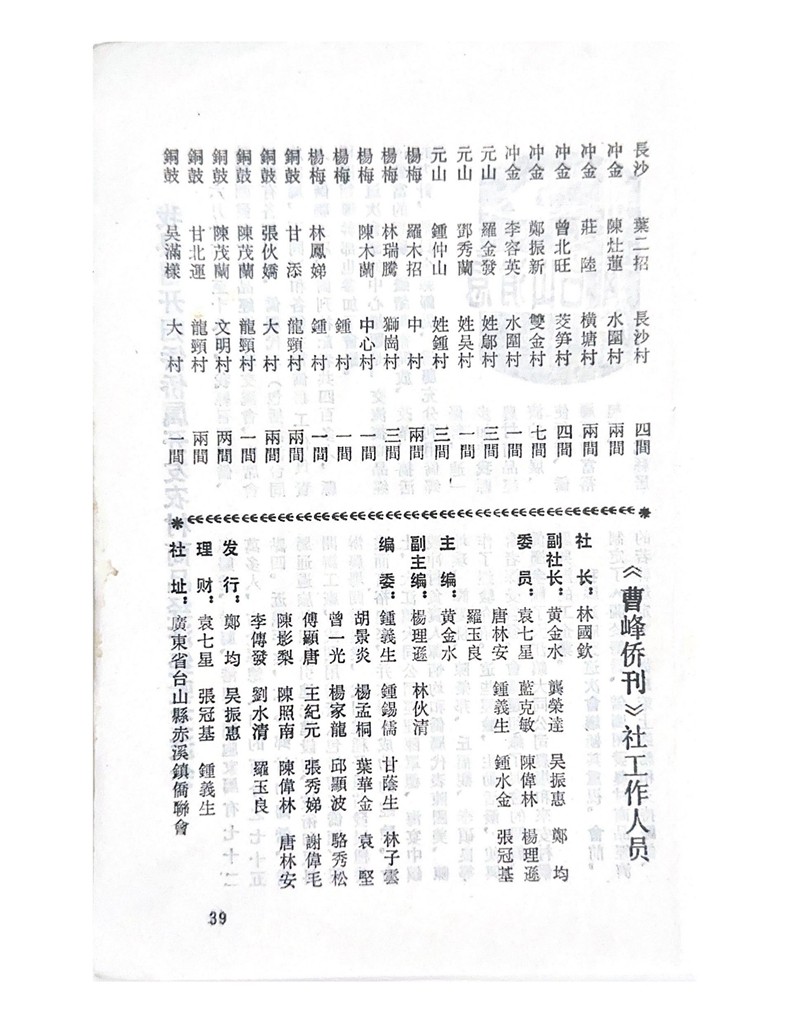 長沙 葉二招 長沙村 四間
冲金 陳灶蓮 水圍村 兩間
冲金 莊陸 橫塘村 兩間
冲金 曾北旺 茭笋村 四間
冲金 鄭振新 雙金村 七間
冲金 李容英 水圍村 一間
元山 羅金發 姓鄔村 三間
元山 鄧秀蘭 姓吳村 一間
元山 鍾仲山 姓鍾村 三間
楊梅 羅木招 中村 兩間
楊梅 林瑞騰 獅崗村 三間
楊梅 陳木蘭 中心村 一間
楊梅 鍾村 一間
楊梅 林鳳娣 鍾村 一間
銅鼓 甘添 龍頸村 兩間
銅鼓 張伙嬌 大村 兩間
銅鼓 陳茂蘭 龍頸村 一間
銅鼓 陳茂蘭 文明村 两間
銅鼓 甘北運 龍頸村 兩間
銅鼓 吴滿樣 大村 一間
《曹峰侨刊》社工作人员
社长：林國欽
副社长：黄金水 龔榮達 吴振惠 鄭均
委员：袁七星 藍克敏 陳偉林 楊理遜
唐林安 鍾義生 鍾水金 張冠基
羅玉良
主编：黄金水
副主编：楊理遜 林伙清
编委：鍾義生 鍾錫儒 甘蔭生 林子雲
胡景炎 楊孟桐 葉華金 袁堅
曾一光 楊家龍 邱顯波 駱秀松
傅顯唐 王紀元 張秀娣 謝偉毛
陳影梨 陳照南 陳偉林 唐林安
李傳發 劉水清 羅玉良
发行：鄭均 吴振惠
理财：袁七星 張冠基 鍾義生
社址：廣東省台山縣赤溪鎮僑聯會
39